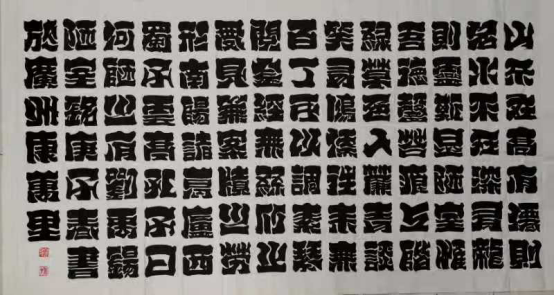 山不在高有僊則
名水不在深有龍
則靈斯是陋室惟
吾德馨苔痕上階
綠草色入簾青談
笑有鴻儒往來無
白丁可以調素琴
閱金經無絲竹之
亂耳無案牘之勞
形南陽諸葛廬西
蜀子雲亭孔子曰
何陋之有劉禹錫
陋室銘庚子春書
於廣康萬里